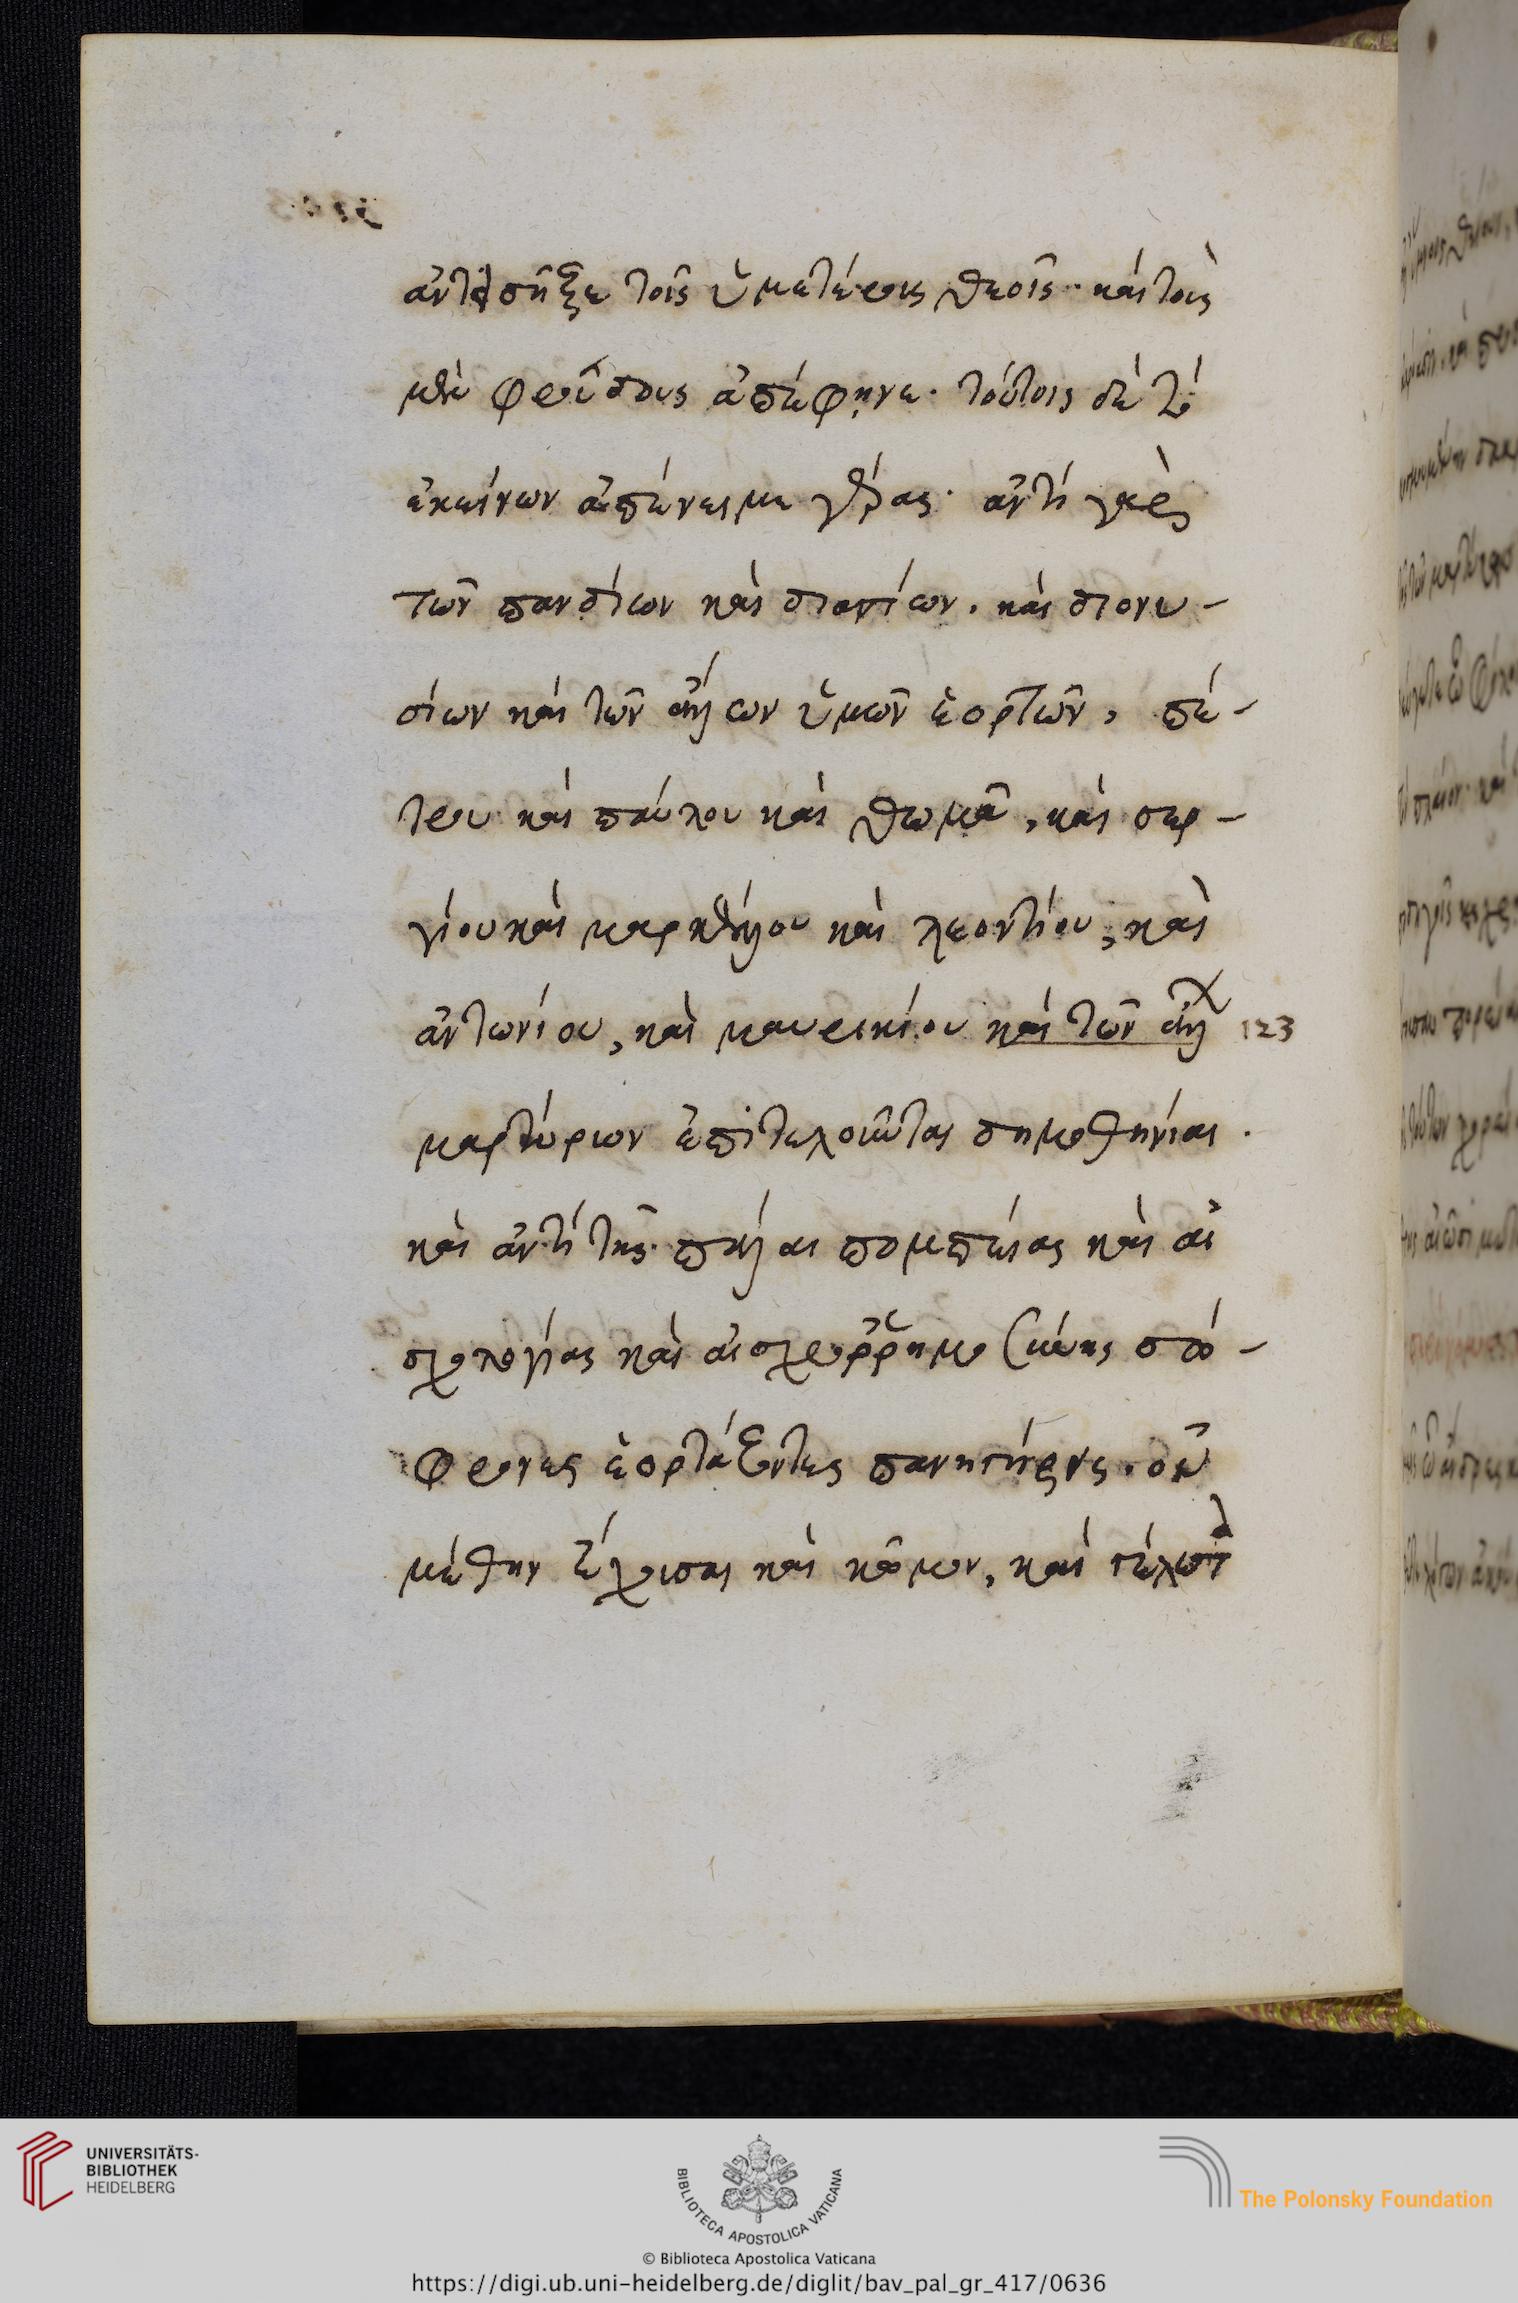 ἀντεισῆξε τοῖς ὑμετέροις θεοῖς· καὶ τοὺς
μὲν φρούδους ἀπέφηνε· τούτοις δὲ τὸ
ἐκείνων ἀπένειμε γέρας· ἀντὶ γὰρ
τῶν πανδίων καὶ διασίων, καὶ διονυ-
σίων καὶ τῶν ἄλλων ὑμῶν ἑορτῶν, πέ-
τρου καὶ παύλου καὶ θωμᾶ, καὶ σερ-
γίου καὶ μαρκέλλου καὶ λεοντίου, καὶ
ἀντωνίου, καὶ μαυρικίου καὶ τῶν ἄλλ 123
μαρτύρων ἐπιτελοῦνται δημοθοινίαι.
καὶ ἀντὶ τῆς πάλαι πομπείας καὶ αἰ
σχρολογίας καὶ αἰσχρορρημοσύνης σώ-
φρονες ἑορτάζονται πανηγύρεις. οὐ
μέθην ἔχουσαι καὶ κῶμον, καὶ γέλωτα
UNIVERSITÄTS-
BIBLIOTHEK
HEIDELBERG
BIBLIOTECA APOSTOLICA VATICANA
The Polonsky Foundation
© Biblioteca Apostolica Vaticana
https://digi.ub.uni-heidelberg.de/diglit/bav_pal_gr_417/0636